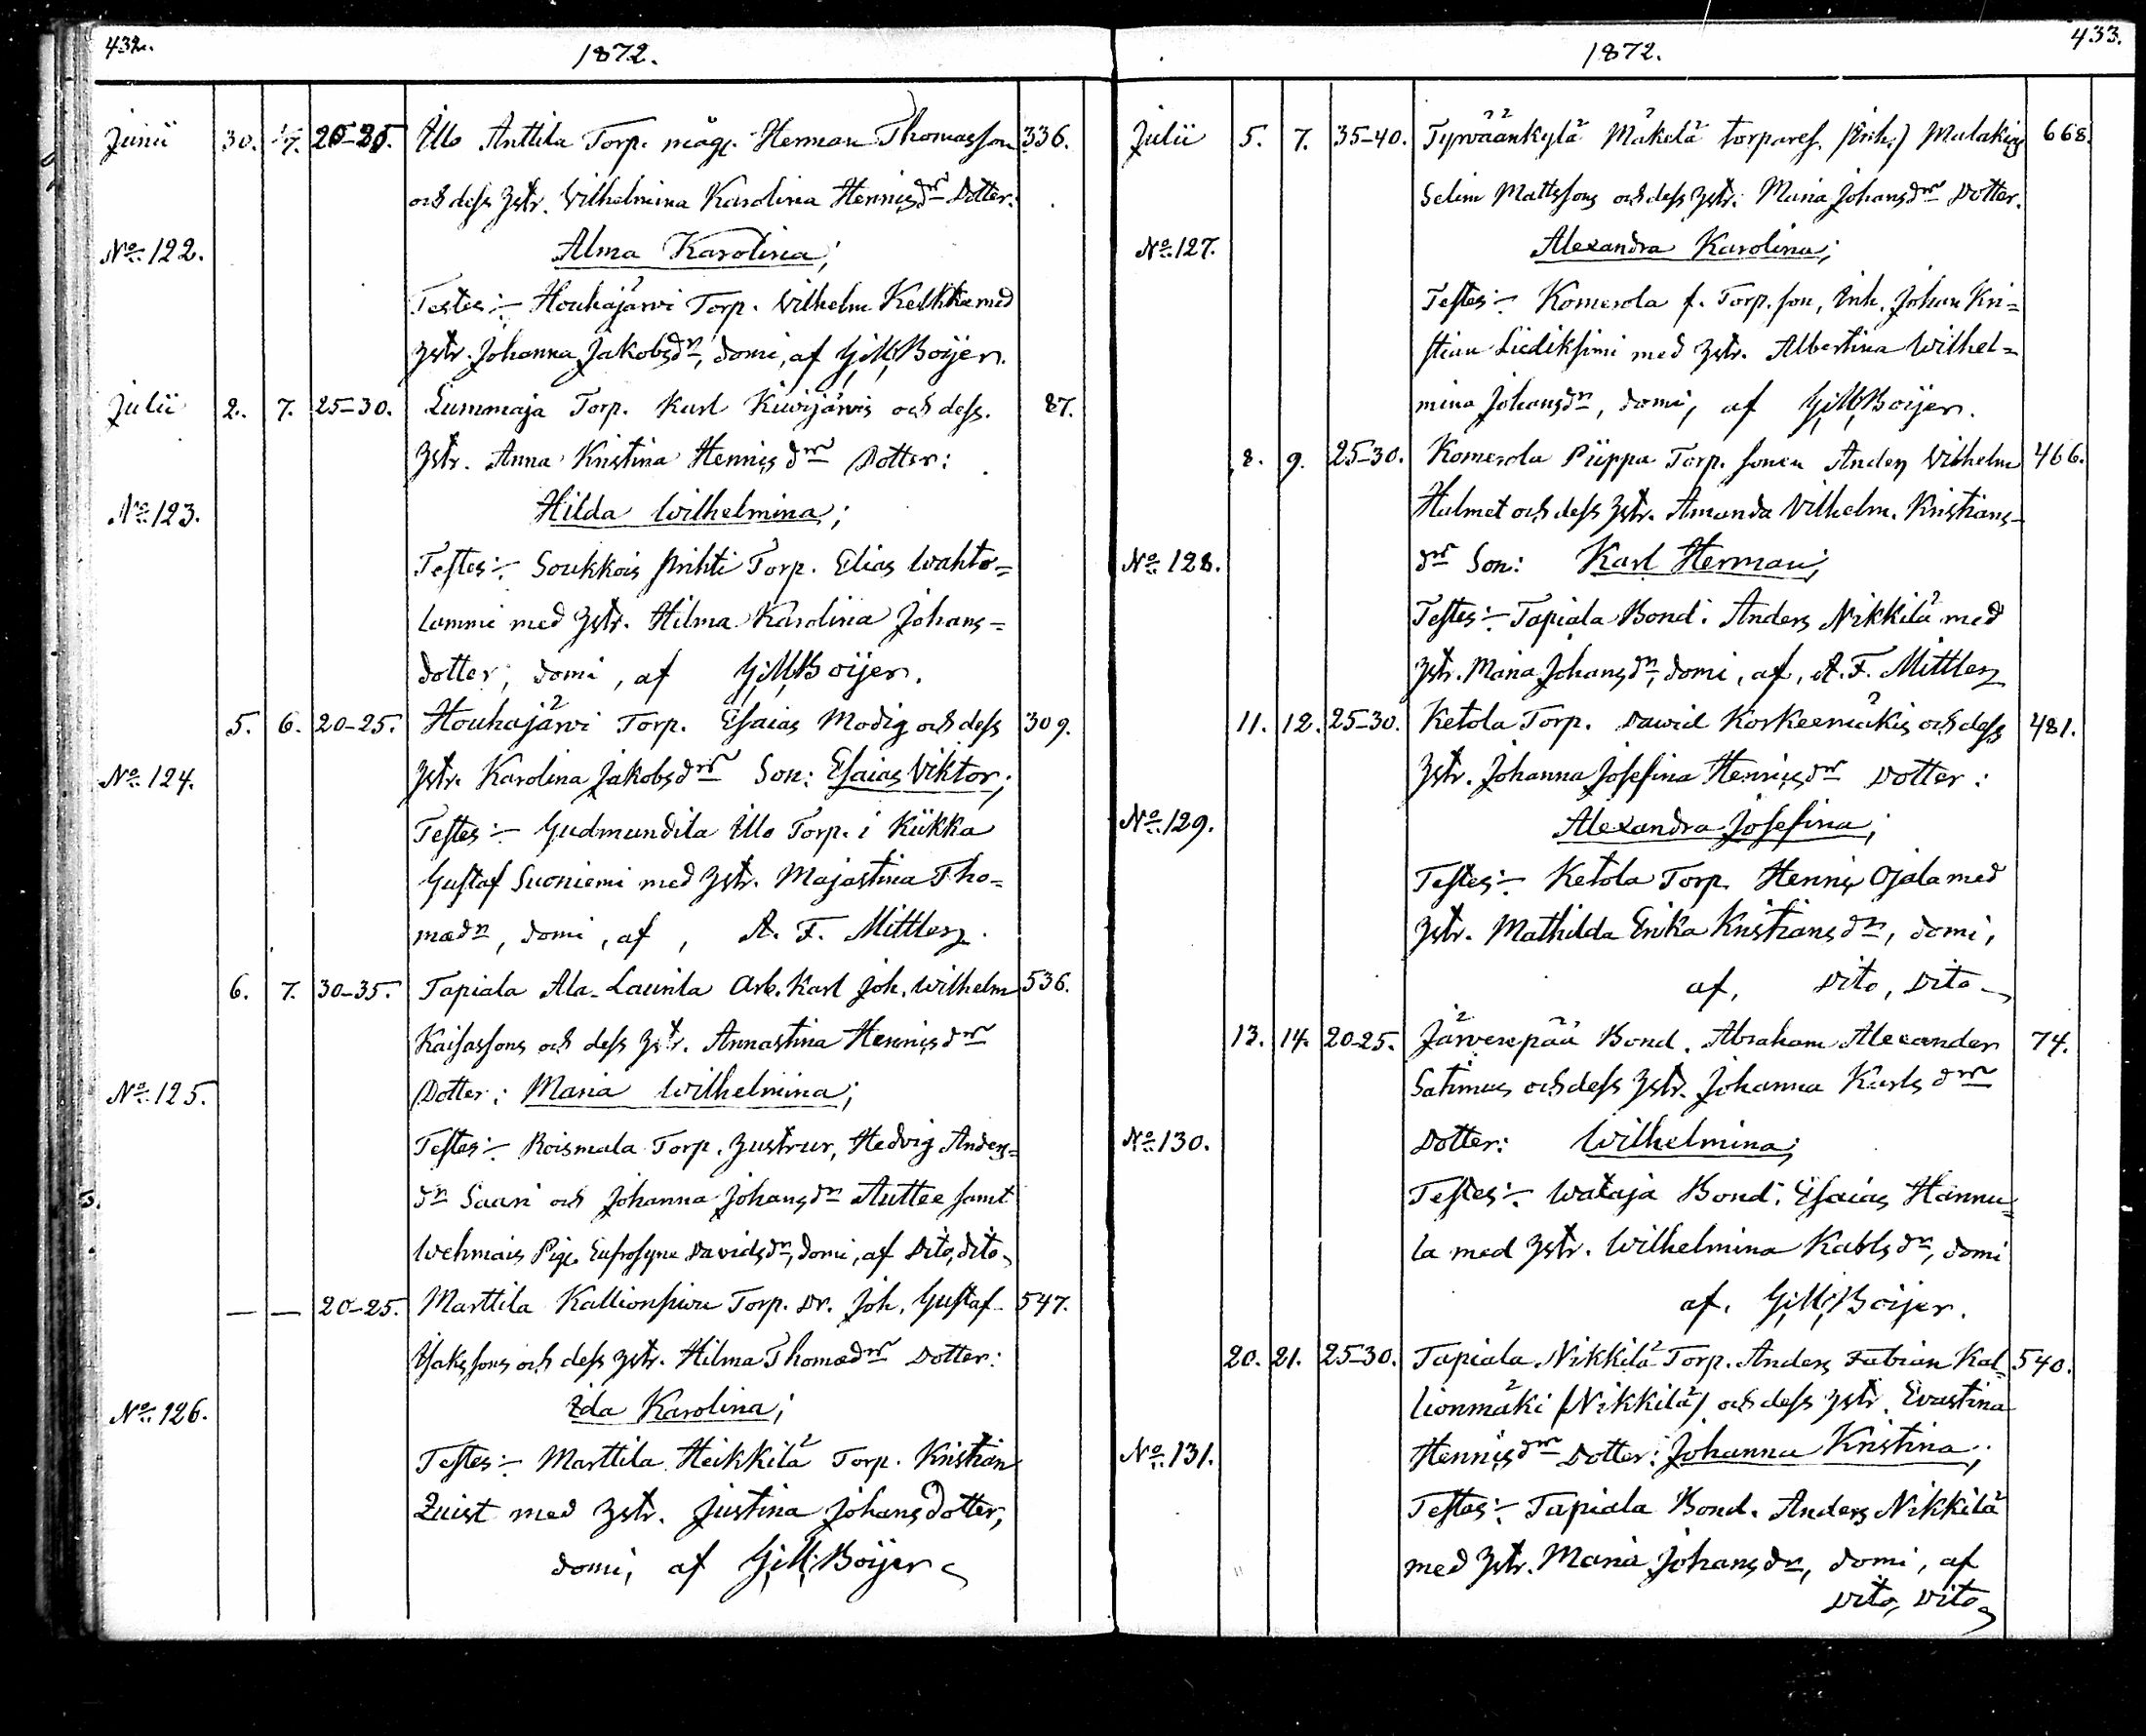 432.
1872.
Junii 30. 1/7. 25-25. Illo Anttila Torp. måg. Herman Thomasson 336.
och dess hstr. Vilhelmina Karolina Henricsdr Dotter.
No. 122. Alma Karolina;
Testes:- Houhajärvi Torp. Wilhelm Kelkka med
hstr. Johanna Jakobsdr, domi, af G. M. Boijer.
Julii 2. 7. 25-30. Lummaja Torp. Karl Kiwijärvis och dess 87.
hstr. Anna Kristina Henricsdr Dotter:
No. 123. Hilda Wilhelmina;
Testes:- Soukkois Prihti Torp. Elias Wahto=
lammi med hstr. Hilma Karolina Johans=
dotter, domi, af G. M. Boijer.
5. 6. 20-25. Houhajärvi Torp. Esaias Modig och dess 309.
No. 124. hstr. Karolina Jakobsdr Son: Esaias Viktor;
Testes:- Gudmundila Illo Torp. i Kiikka
Gustaf Suoniemi med hstr. Majastina Tho=
mædr, domi, af, A. F. Mittler.
6. 7. 30-35. Tapiala Ala-Laurila Arb. Karl Joh. Wilhelm 536.
Kaisassons och dess hstr. Annastina Henricsdr
No. 125. Dotter: Maria Wilhelmina;
Testes:- Roismala Torp. hustrur, Hedvig Anders=
dr Saari och Johanna Johansdr Anttee samt
Wehmais Pig. Eufrosyne Davidsdr, domi, af Dito, dito
— — 20-25. Marttila Kallionsivu Torp. Dr. Joh. Gustaf 547.
Isakssons och dess hstr. Hilma Thomædr Dotter:
No. 126. Ida Karolina;
Testes:- Marttila Heikkilä Torp. Kristian
Quist med hstr. Justina Johansdotter,
domi, af G. M. Boijer
433.
1872.
Julii 5. 7. 35-40. Tyrväänkylä Mäkelä torparef. (Inh.) Malakias 668.
Selim Mattssons och dess hstr. Maria Johansdr Dotter.
No. 127. Alexandra Karolina;
Testes:- Komerola f. Torp. son, Inh. Johan Kri=
stian Liediksimi med hstr. Albertina Wilhel=
mina Johansdr, domi, af G. M. Boijer.
8. 9. 25-30. Komerola Piippa Torp. sonen Anders Vilhelm 466.
Halmet och dess hstr. Amanda Vilhelm. Kristians-
No. 128. dr Son: Karl Herman;
Testes:- Tapiala Bond. Anders Nikkilä med
hstr. Maria Johansdr, domi, af, A. F. Mittler
11. 12. 25-30. Ketola Torp. Dawid Korkeemäkis och dess 481.
hstr. Johanna Josefina Henricsdr Dotter:
No. 129. Alexandra Josefina;
Testes:- Ketola Torp. Henric Ojala med
hstr. Mathilda Erika Kristiansdr, domi,
af, Dito, Dito
13. 14. 20-25. Järvenpää Bond. Abraham Alexander 74.
Satimus och dess hstr. Johanna Karlsdr
No. 130. Dotter: Wilhelmina;
Testes:- Wataja Bond. Esaias Hannu=
la med hstr. Wilhelmina Karlsdr, domi
af, G. M. Boijer.
20. 21. 25-30. Tapiala Nikkilä Torp. Anders Fabian Kal= 540.
lionmäki (Nikkilä) och dess hstr. Evastina
No. 131. Henricsdr Dotter: Johanna Kristina;
Testes:- Tapiala Bond. Anders Nikkilä
med hstr. Maria Johansdr, domi, af
Dito, Dito